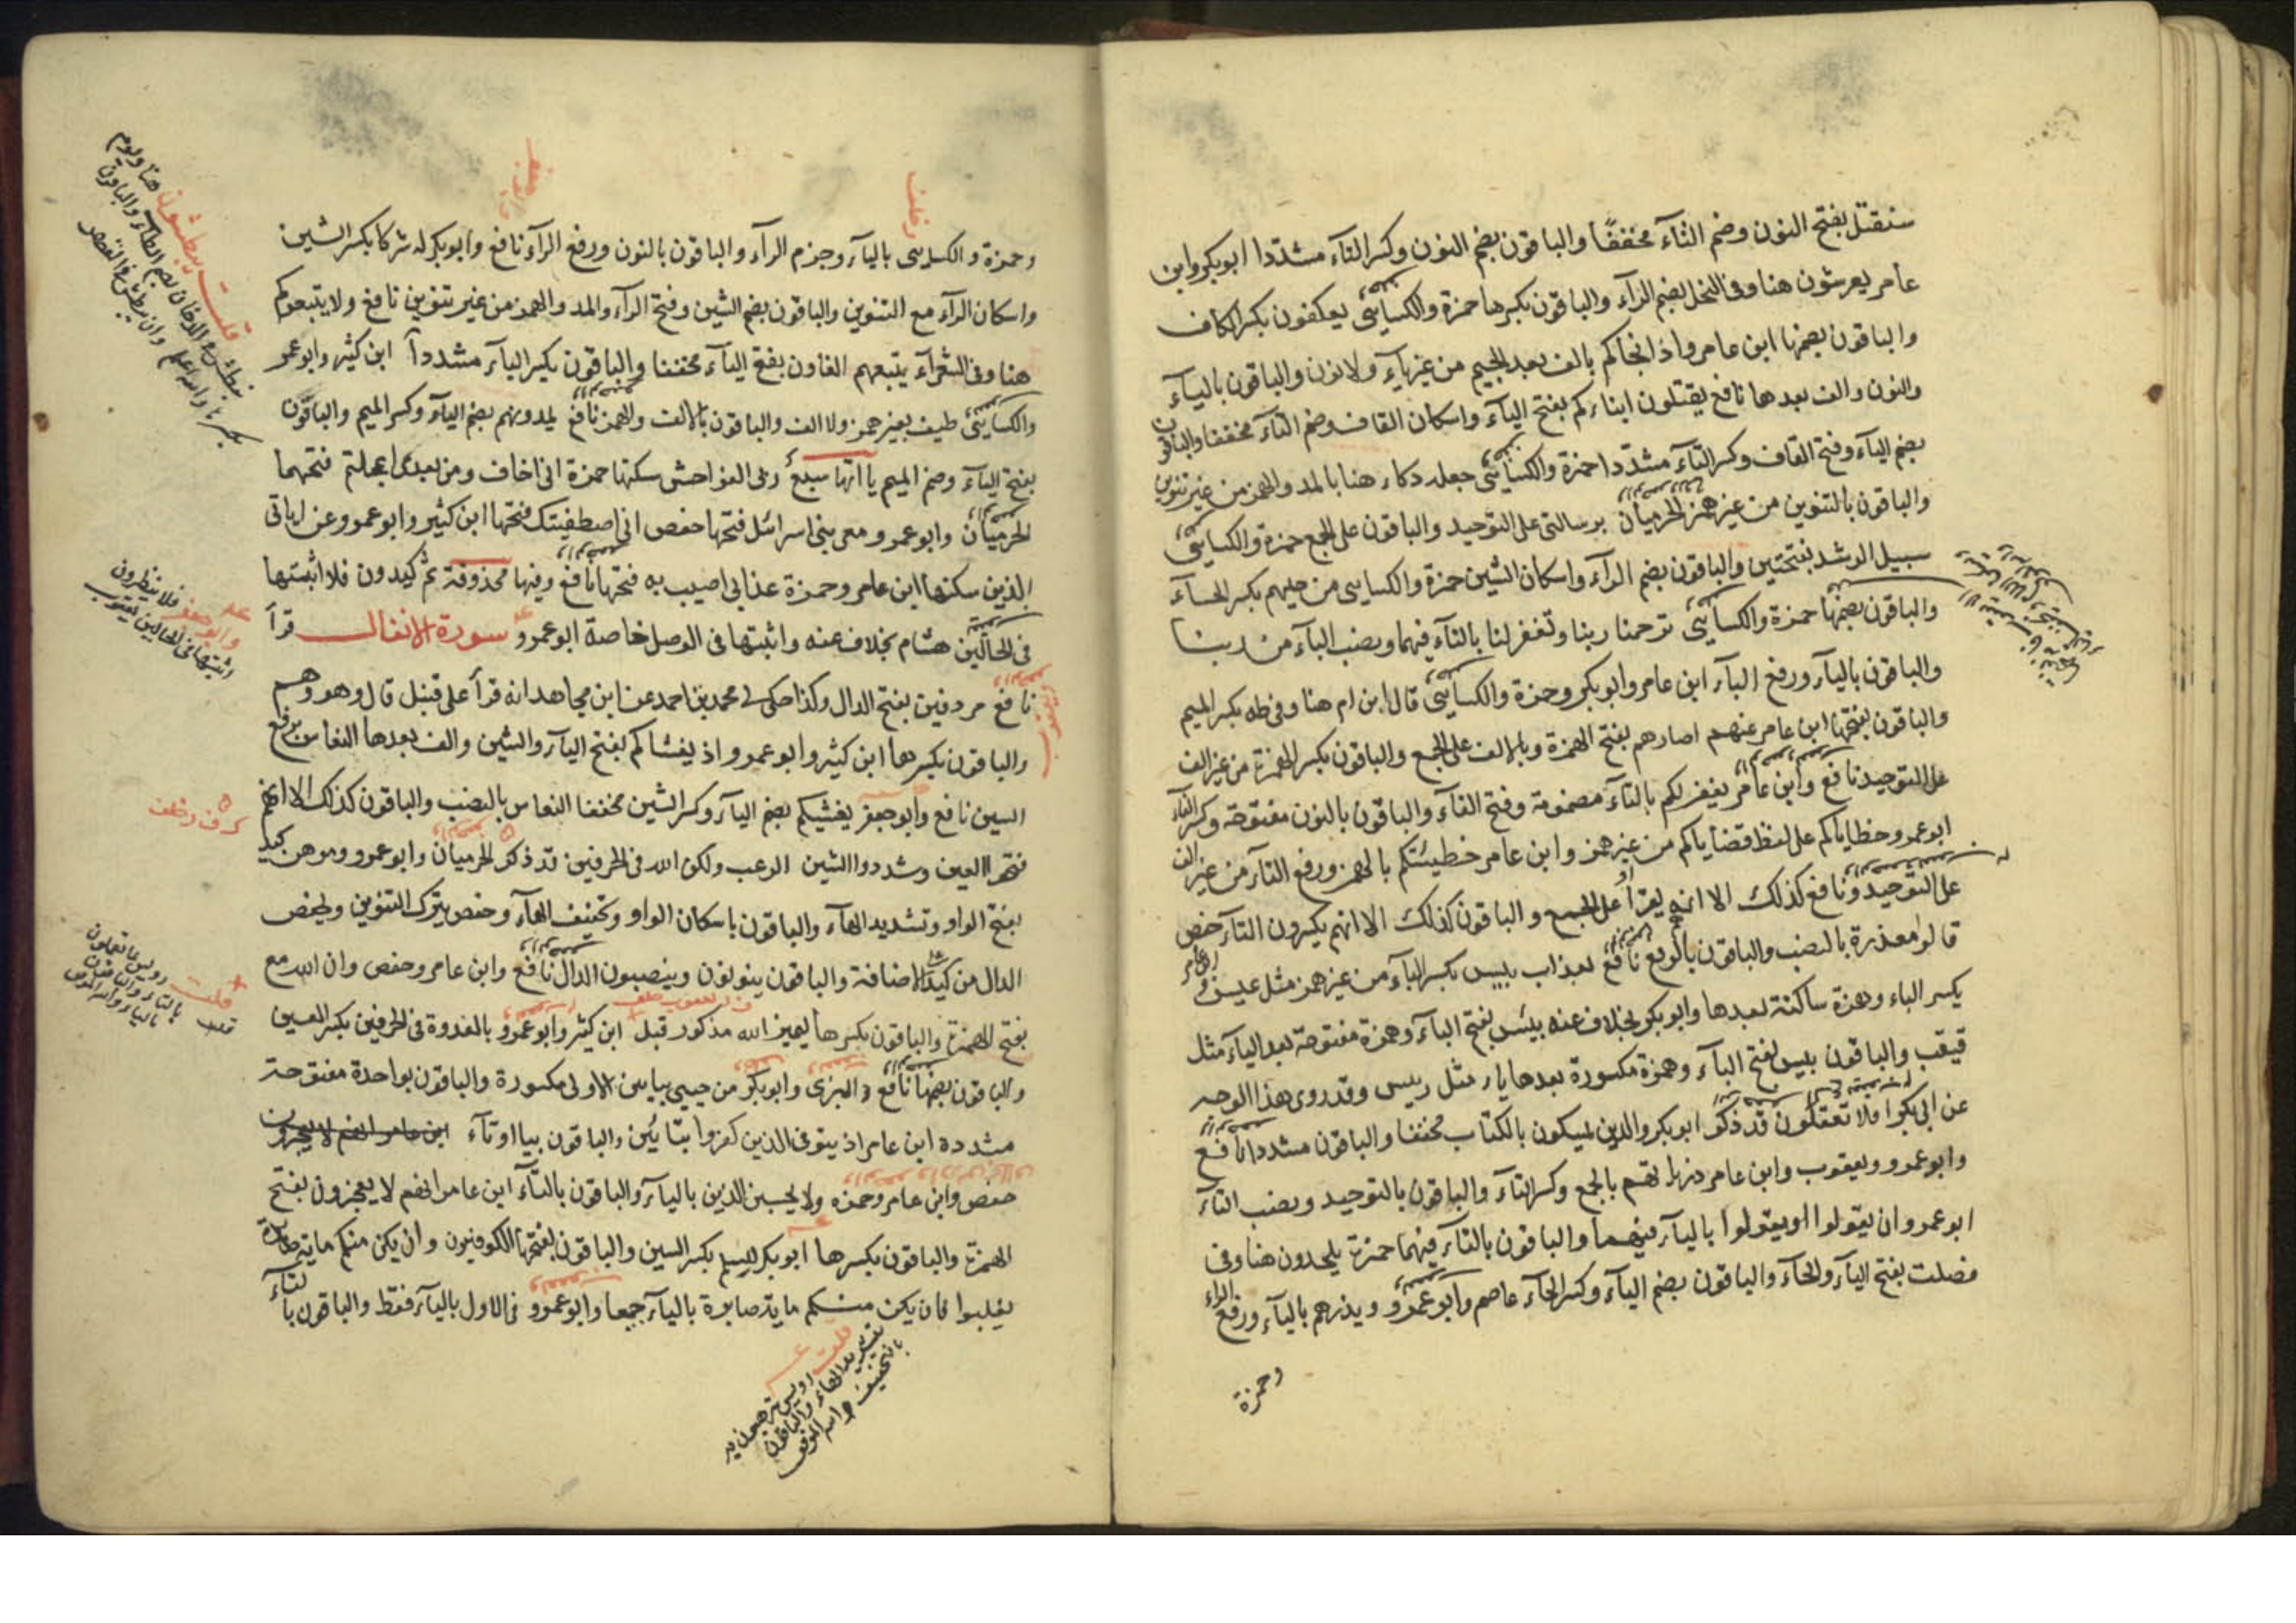 سنقتل بفتح النون وضم التآء مخففًا والباقون بضم النون وكسر التآء مشددا ابوبكر وابن
عامر يعرشون هنا وفى النحل بضم الرآء والباقون بكسرها حمزة والكسايى يعكفون بكسر الكاف
والباقون بضمها ابن عامر واذ انجاكم بالف بعد الجيم من غير يآء ولا نون والباقون باليآء
والنون والف بعدها نافع يقتلون ابناءكم بفتح اليآء واسكان القاف وضم التآء مخففا والباقون
بضم اليآء وفتح القاف وكسر التآء مشددا حمزة والكسايى جعله دكاء هنا بالمد والهمز من غير تنوين
والباقون بالتنوين من غير همز الحرميان برسالتى على التوحيد والباقون على الجمع حمزة والكسايى
سبيل الرشد بفتحتين والباقون بضم الرآء واسكان الشين حمزة والكسايى من حليهم بكسر الحآء
والباقون بضمها حمزة والكسايى ترحمنا ربنا وتغفر لنا بالتآء فيهما وبنصب البآء من ربنا
والباقون باليآء ورفع البآء ابن عامر وابوبكر وحمزة والكسايى قال ابن ام هنا وفى طه بكسر الميم
والباقون بفتحها ابن عامر عنهم اصارهم بفتح الهمزة وبالالف على الجمع والباقون بكسر الهمزة من غير الف
على التوحيد نافع وابن عامر تغفر لكم بالتآء مضمومة وفتح الفآء والباقون بالنون مفتوحة وكسر الفآء
ابوعمرو خطاياكم على لفظ قضاياكم من غير همز وابن عامر خطيئتكم بالهمز ورفع التآء من غير الف
على التوحيد ونافع كذلك الا انه يقرأ على الجمع والباقون كذلك الا انهم يكسرون التآء حفص
قالوا معذرة بالنصب والباقون بالرفع نافع بعذاب بيس بكسر البآء من غير همز مثل عيس وابن عامر
بكسر الباء وهمزة ساكنة بعدها وابوبكر بخلاف عنه بيئس بفتح البآء وهمزة مفتوحة بعد اليآء مثل
قيقب والباقون بئيس بفتح البآء وهمزة مكسورة بعدها يآء مثل رييس وقد روى هذا الوجه
عن ابى بكر افلا تعقلون قد ذكر ابوبكر والذين يمسكون بالكتاب مخففا والباقون مشددا نافع
وابوعمرو ويعقوب وابن عامر ذرياتهم بالجمع وكسر التآء والباقون بالتوحيد وبنصب التآء
ابوعمرو ان يقولوا او يقولوا باليآء فيهما والباقون بالتآء فيهما حمزة يلحدون هنا وفى
فصلت بفتح اليآء والحآء والباقون بضم اليآء وكسر الحآء عاصم وابوعمرو ويذرهم باليآء ورفع الراء
وحمزة
وحمزة والكسايى باليآء وجزم الرآء والباقون بالنون ورفع الرآء نافع وابوبكر له شركا بكسر الشين
واسكان الرآء مع التنوين والباقون بضم الشين وفتح الرآء والمد والهمز من غير تنوين نافع ولا يتبعوكم
هنا وفى الشعرآء يتبعهم الغاون بفتح البآء مخففا والباقون بكسر البآء مشددا ابن كثير وابوعمرو
والكسايى طيف بغير همز ولا الف والباقون بالالف والهمز نافع يمدونهم بضم اليآء وكسر الميم والباقون
بفتح اليآء وضم الميم ياآتها سبع ربى الفواحش سكنها حمزة انى اخاف ومن بعدى اعجلتم فتحهما
الحرميان وابوعمرو معى بنى اسرائل فتحها حفص انى اصطفيتك فتحها ابن كثير وابوعمرو وعن اياتى
الذين سكنها ابن عامر وحمزة عذابى اصيب به فتحها نافع وفيها محذوفة ثم كيدون فلا اثبتها
فى الحالين هشام بخلاف عنه واثبتها فى الوصل خاصة ابوعمرو سورة الانفال قرأ
نافع مردفين بفتح الدال وكذا حكى لى محمد بن احمد عن ابن مجاهد انه قرأ على قنبل قال وهو وهم
والباقون بكسرها ابن كثير وابوعمرو اذ يغشاكم بفتح اليآء والشين والف بعدها النعاس برفع
السين نافع وابوجعفر يغشيكم بضم اليآء وكسر الشين مخففا النعاس بالنصب والباقون كذلك الا انهم
فتحوا الغين وشددوا الشين الرعب ولكن الله فى الحرفين قد ذكر الحرميان وابوعمرو وموهن كيد
بفتح الواو وتشديد الهآء والباقون باسكان الواو وتخفيف الهآء وحفص يترك التنوين ويخفض
الدال من كيد للاضافة والباقون ينونون وينصبون الدال نافع وابن عامر وحفص وان الله مع
بفتح الهمزة والباقون بكسرها ليميز الله مذكور قبل ابن كثير وابوعمرو بالعدوة فى الحرفين بكسر العين
والباقون بضمها نافع والبزى وابوبكر من حيي بيايين الاولى مكسورة والباقون بواحدة مفتوحة
مشددة ابن عامر اذ يتوفى الذين كفروا بتائين والباقون بيا اوتآء
حفص وابن عامر وحمزه ولا يحسبن الذين باليآء والباقون بالتآء ابن عامر انهم لا يعجزون بفتح
الهمزة والباقون بكسرها ابوبكر للسلم بكسر السين والباقون بفتحها الكوفيون وان يكن منكم ماية صابرة
يغلبوا فان يكن منكم ماية صابرة باليآء جميعا وابوعمرو فى الاول باليآء فقط والباقون بالتآء
قلت يبطشون هنا ويوم
نبطش فى الدخان بضم الطآء والباقون
بكسرها والله اعلم
وابوجعفر فلا تنظرون
اثبتها فى الحالين يعقوب
قلت رويس بما تعملون
بالتاء والباقون
بالياء والله الموفق
قلت رويس ترهبون به
بتشديد الهاء والباقون
بالتخفيف والله الموفق